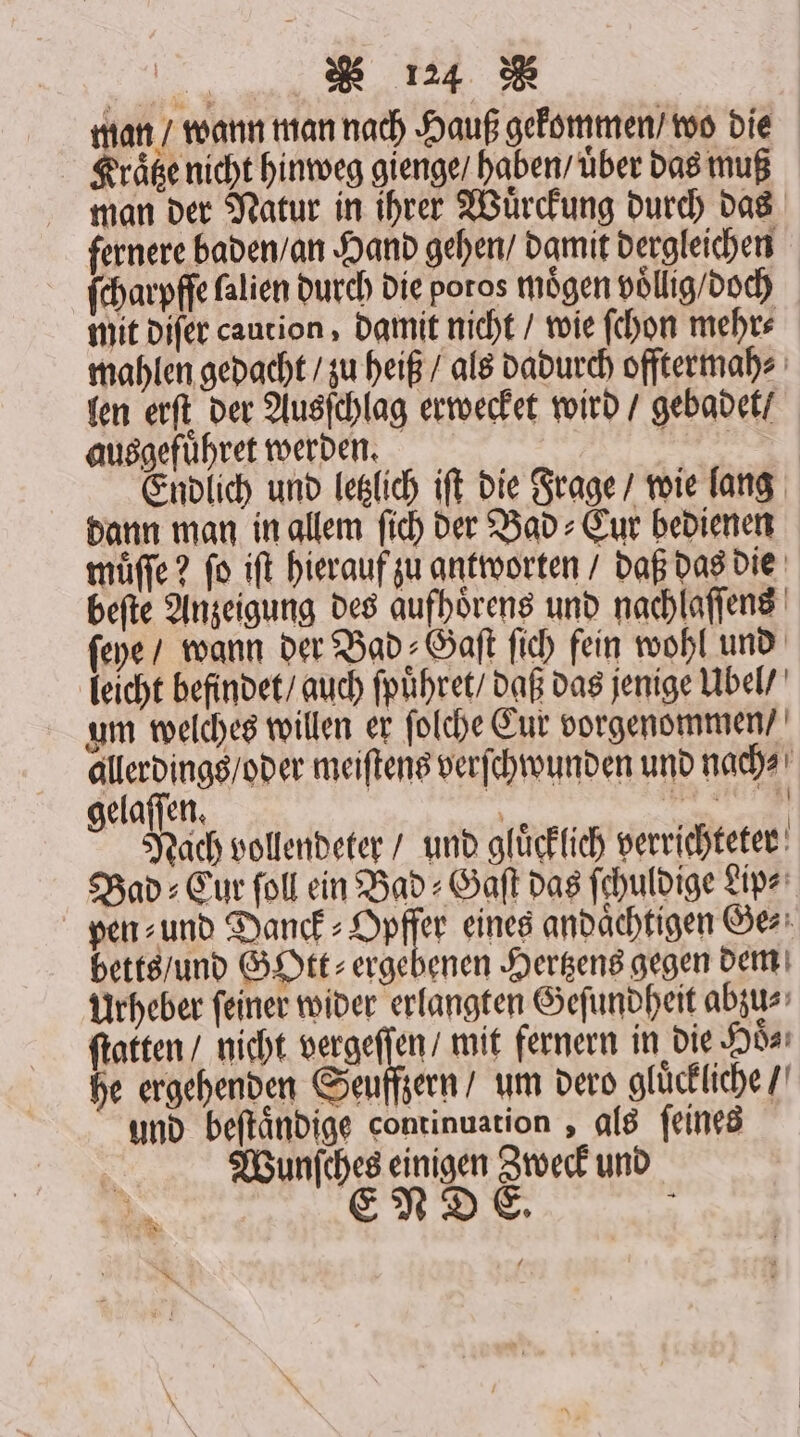 ❦ 124 ❦
man / wann man nach Hauß gekommen / wo die
Kraͤtze nicht hinweg gienge / haben / uͤber das muß
man der Natur in ihrer Wuͤrckung durch das
fernere baden / an Hand gehen / damit dergleichen
ſcharpffe ſalien durch die poros moͤgen voͤllig / doch
mit diſer caution, damit nicht / wie ſchon mehr⸗
mahlen gedacht / zu heiß / als dadurch offtermah⸗
len erſt der Ausſchlag erwecket wird / gebadet /
ausgefuͤhret werden.
Endlich und letzlich iſt die Frage / wie lang
dann man in allem ſich der Bad⸗Cur bedienen
muͤſſe? ſo iſt hierauf zu antworten / daß das die
beſte Anzeigung des aufhoͤrens und nachlaſſens
ſeye / wann der Bad⸗Gaſt ſich fein wohl und
leicht befindet / auch ſpuͤhret / daß das jenige Ubel /
um welches willen er ſolche Cur vorgenommen /
allerdings / oder meiſtens verſchwunden und nach⸗
gelaſſen.
Nach vollendeter / und gluͤcklich verrichteter
Bad⸗Cur ſoll ein Bad⸗Gaſt das ſchuldige Lip⸗
pen⸗und Danck⸗Opffer eines andaͤchtigen Ge⸗
betts / und GOtt⸗ergebenen Hertzens gegen dem
Urheber ſeiner wider erlangten Geſundheit abzu⸗
ſtatten / nicht vergeſſen / mit fernern in die Hoͤ⸗
he ergehenden Seuffzern / um dero gluͤckliche /
und beſtaͤndige continuation, als ſeines
Wunſches einigen Zweck und
ENDE.